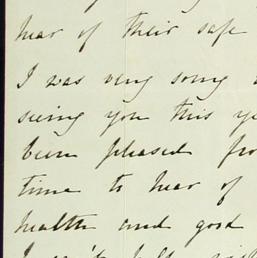 hear of their safe
I was very sorry
seeing you this ye
been pleased fro
time to hear of
health and good